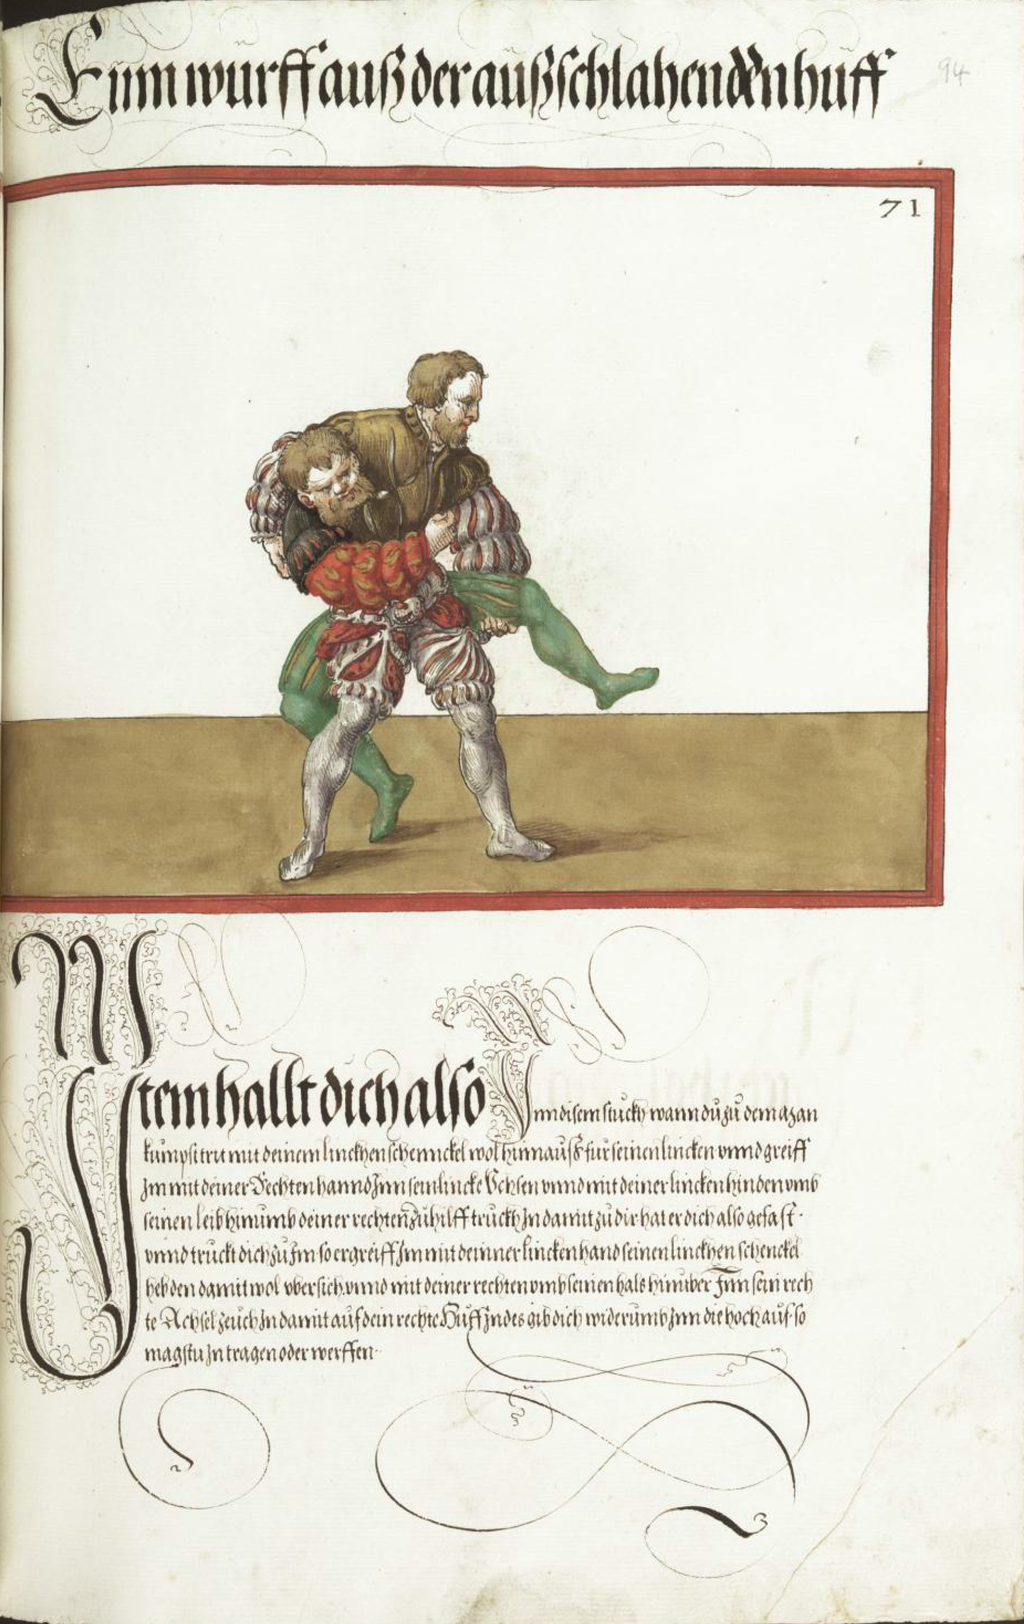 Einn wurff auß der außschlahenden huff
94
71
Item hallt dich also Inn disem stuckh wann du zu dem Man
kumpst tritt mit deinem linckhen schennckel wol hinnauss fur seinen lincken unnd greiff
Im mit deiner Rechten hannd Inn sein lincke Uchsen unnd mit deiner lincken hinden umb
seinen leib hinumb deiner rechten zuhilff truckh In damit zu dir hat er dich also gefast
unnd truckt dich zu Im so ergreiff Im mit deinner lincken hand seinen linckhen schenckel
heb den damit wol ubersich unnd mit deiner rechten umb seinen hals hinuber Inn sein rech
te Achsel zeuch In damit auf dein rechte Huff Indes gib dich widerumb Inn die hoch auf so
magstu In tragen oder werffen